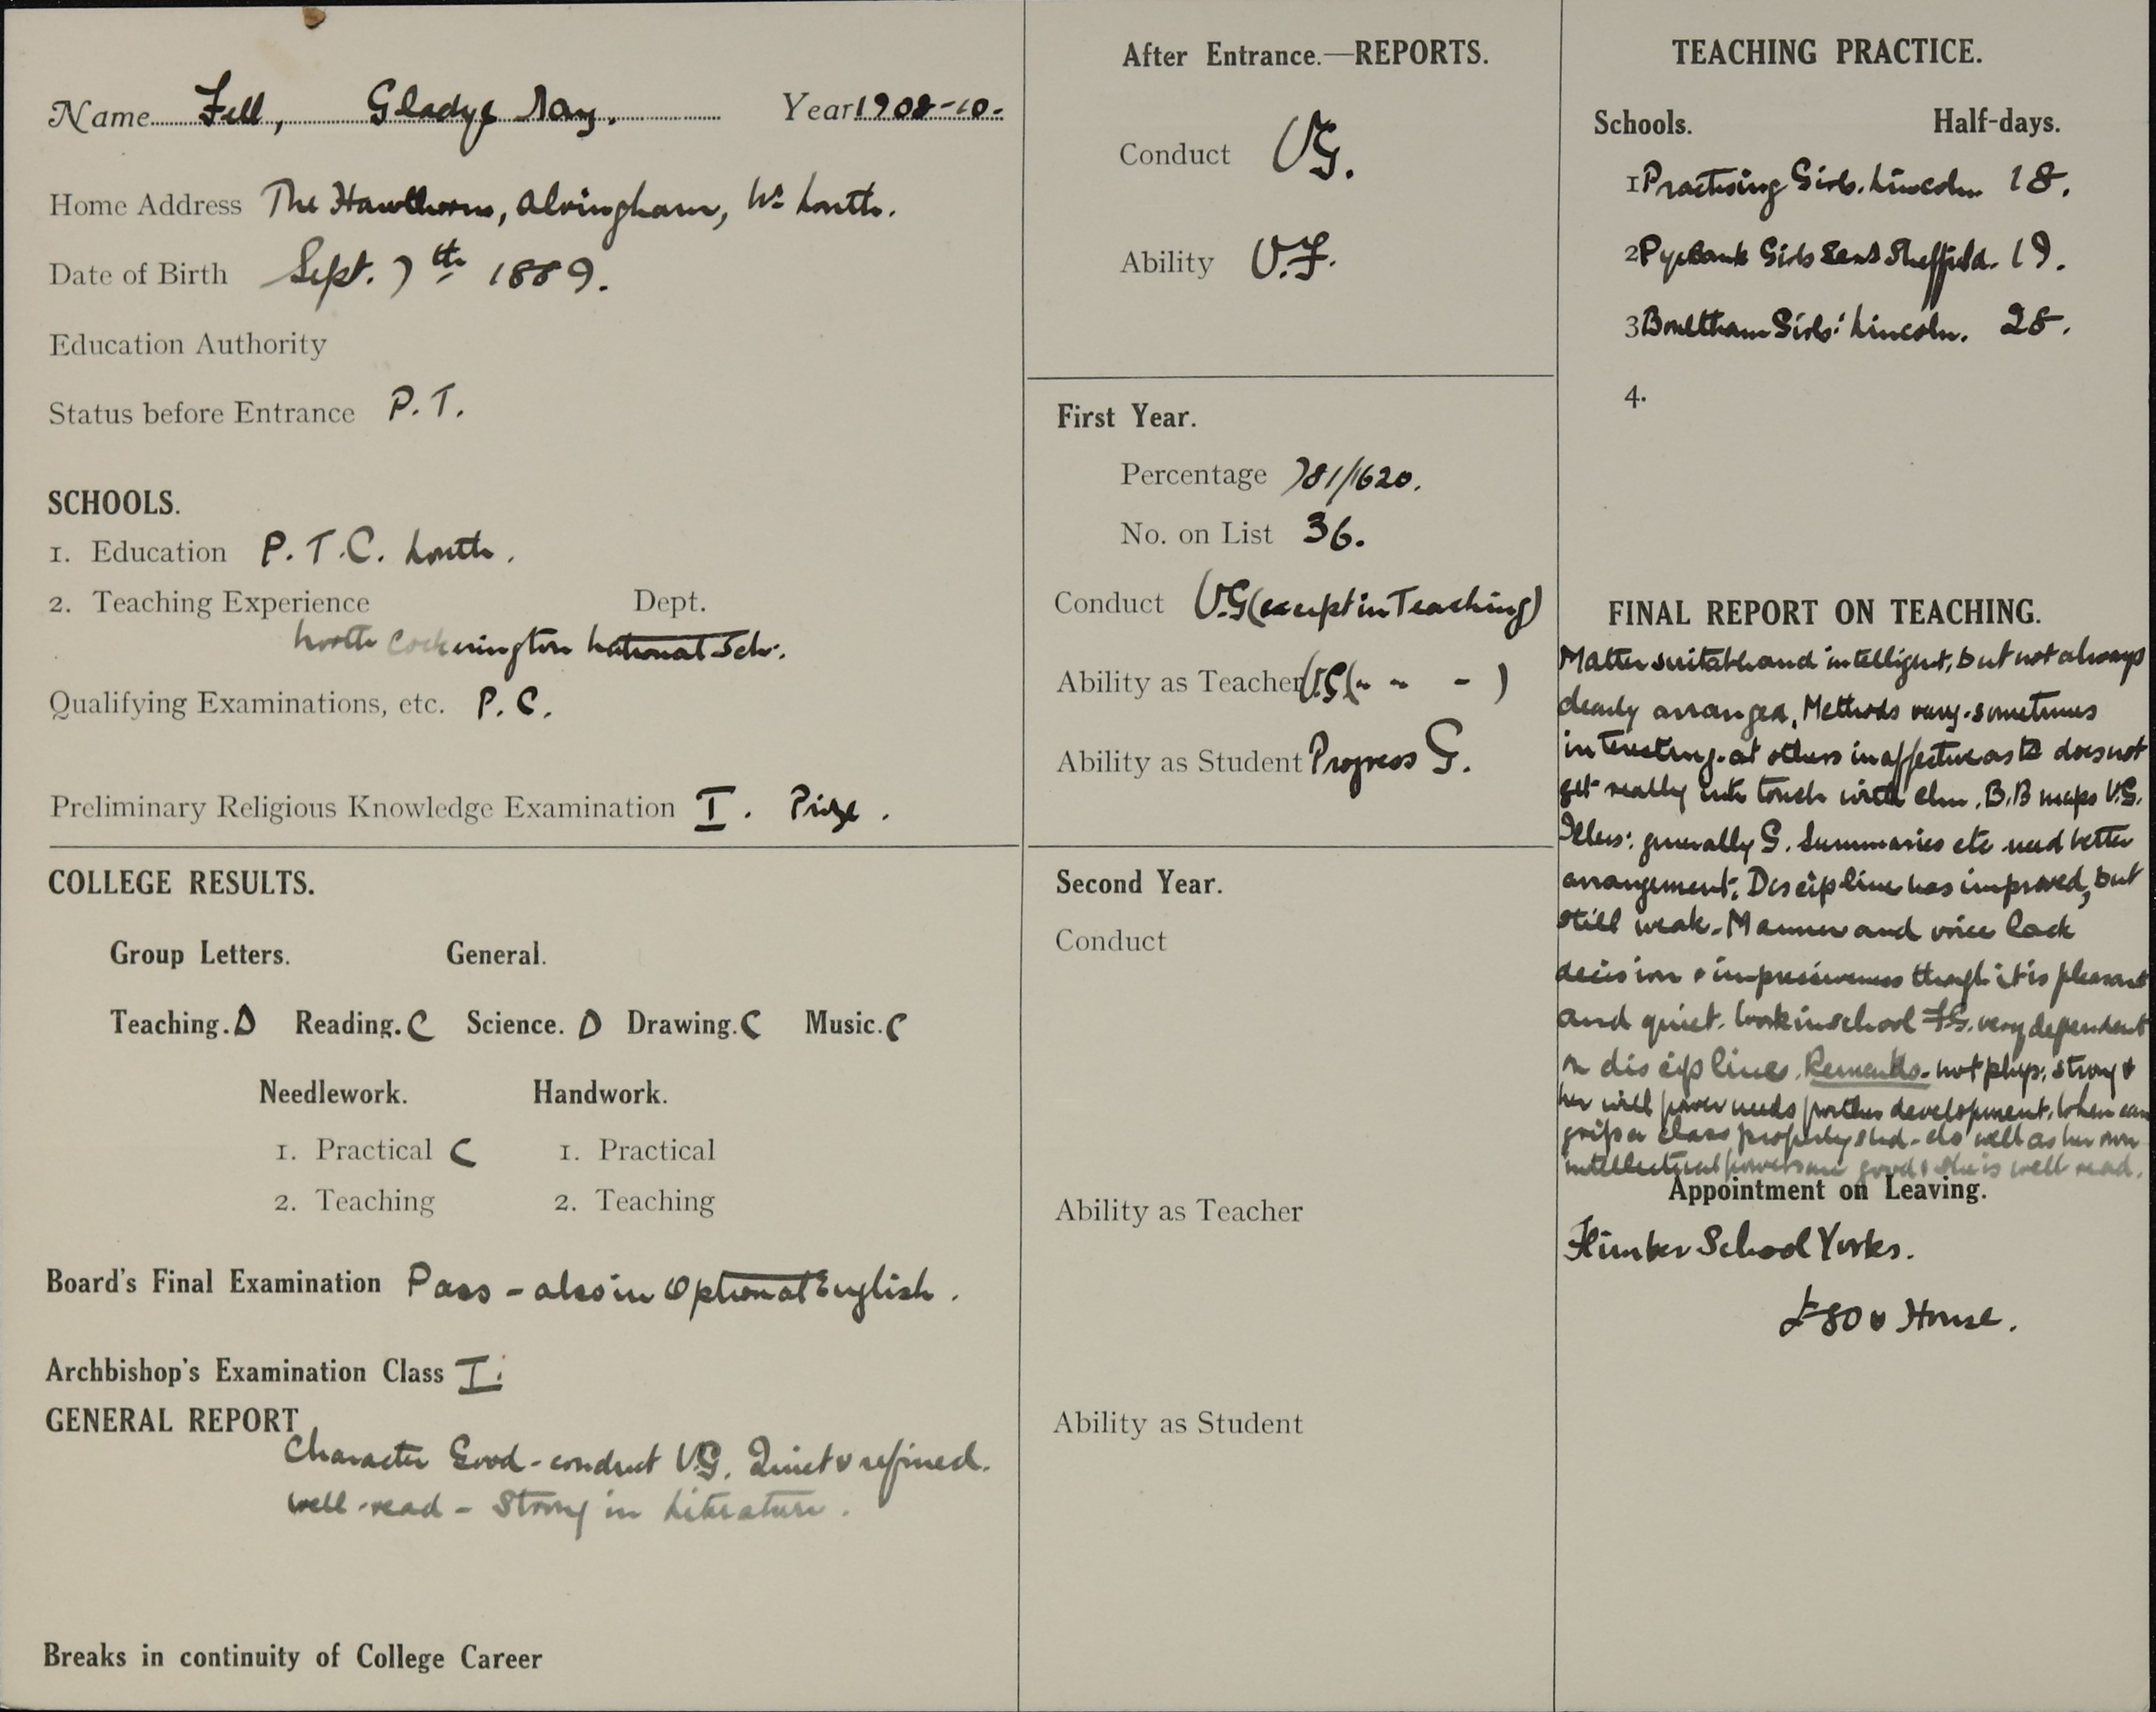 Name Fell, Gladys May. Year 1908-10.
Home Address The Hawthorns, Alvingham, Nr Louth.
Date of Birth Sept. 7th 1889.
Education Authority
Status before Entrance P.T.
SCHOOLS.
1. Education P.T.C. Louth.
2. Teaching Experience Dept.
North Cockerington National Sch:
Qualifying Examinations, etc. P.C.
Preliminary Religious Knowledge Examination I. Prize.
COLLEGE RESULTS.
Group Letters. General.
Teaching. D Reading. C Science. D Drawing. C Music. C
Needlework. Handwork.
1. Practical C 1. Practical
2. Teaching 2. Teaching
Board's Final Examination Pass - also in Optional English.
Archbishop's Examination Class I.
GENERAL REPORT
Character Good - conduct V.G. Quiet & refined.
Well-read - Strong in Literature.
Breaks in continuity of College Career
After Entrance.—REPORTS.
Conduct VG.
Ability V.F.
First Year.
Percentage 781/1620.
No. on List 36.
Conduct V.G (except in Teaching)
Ability as Teacher (" " - )
Ability as Student Progress G.
Second Year.
Conduct
Ability as Teacher
Ability as Student
TEACHING PRACTICE.
Schools. Half-days.
1 Practising Girls. Lincoln 18.
2 Pyebank Girls Sheffield. 19.
3 Boultham Girls: Lincoln. 28.
4.
FINAL REPORT ON TEACHING.
Matter suitable and intelligent, but not always
clearly arranged. Methods vary - sometimes
interesting - at others ineffective as does not
get really into touch with chn. B.B maps V.G.
Illus: generally G. Summaries etc need better
arrangement. Discipline has improved, but
still weak. Manner and voice lack
decision & impressiveness though it is pleasant
and quiet. Work in school F.G. very dependent
on discipline. Remarks - not phys: strong &
her will power needs further development. When can
grip a class properly shd. do well as her own
intellectual powers are good & she is well read.
Appointment on Leaving.
School Yorks.
£80 & House.